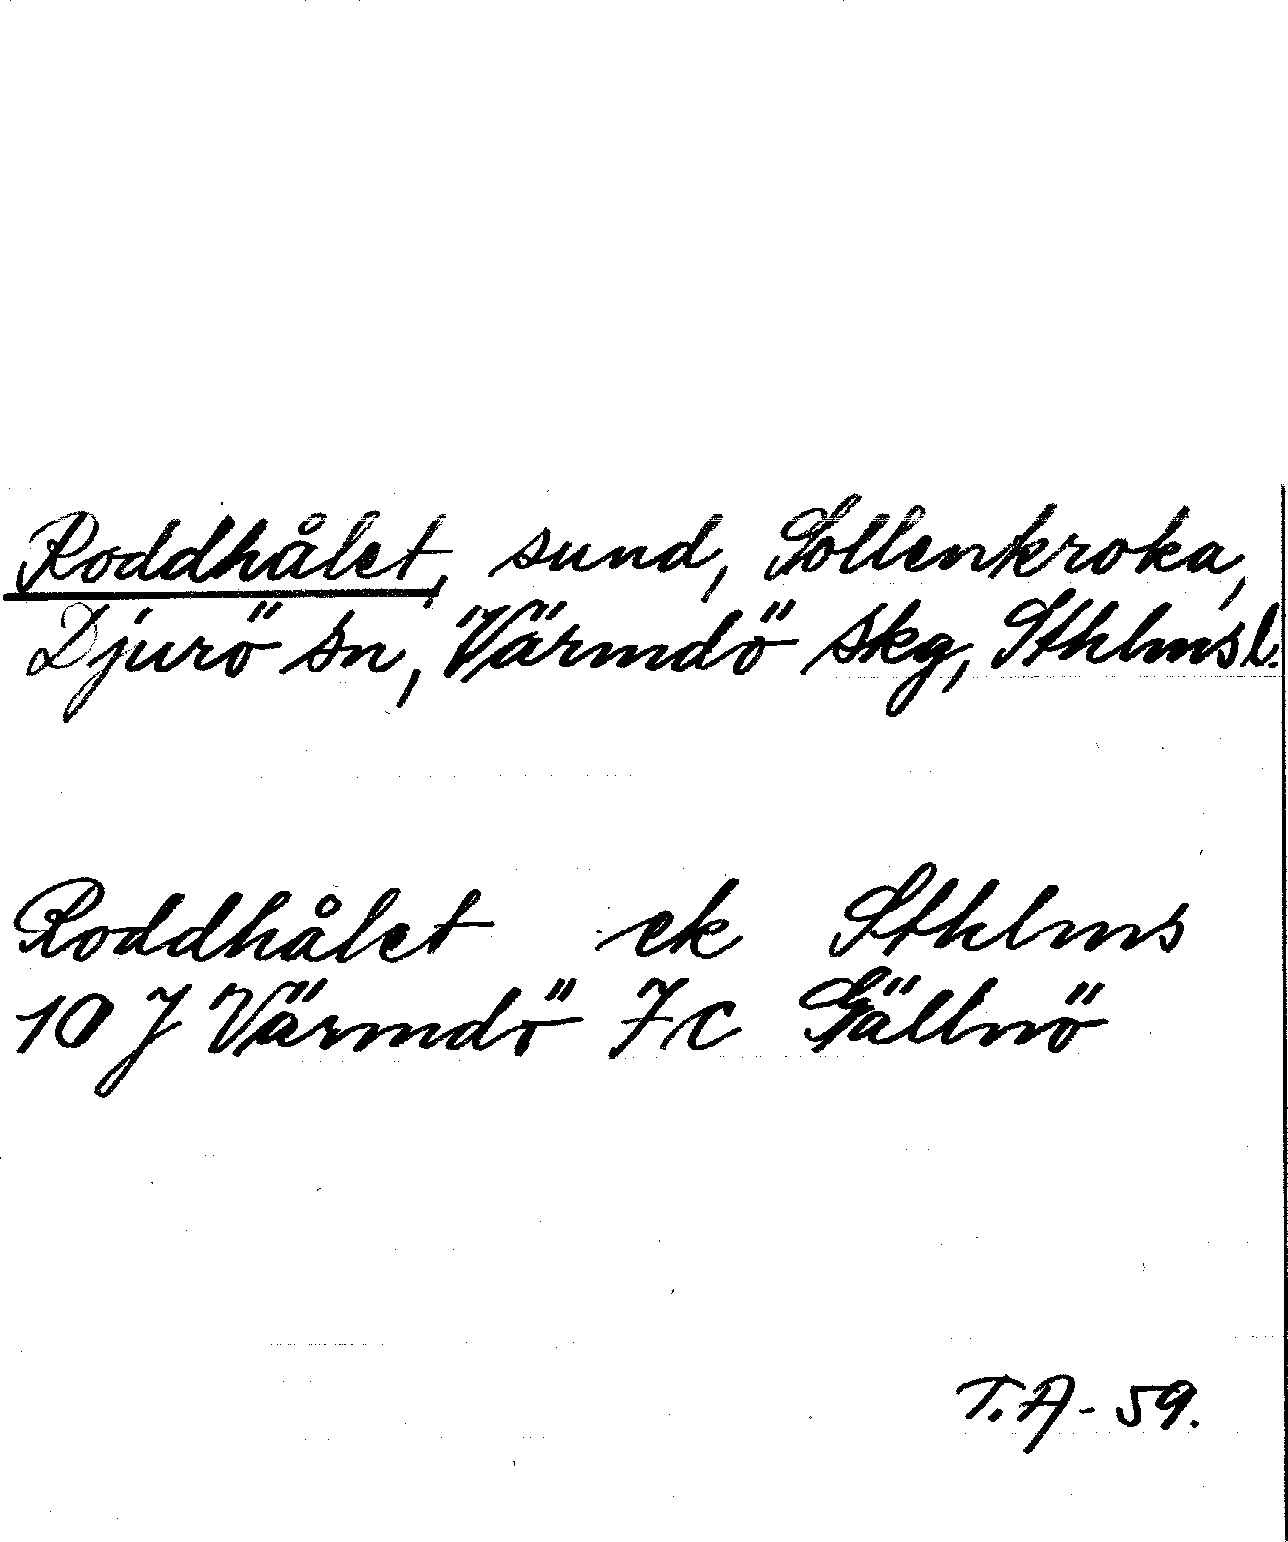 Roddhålet, sund, Sollenkroka,
Djurö sn, Värmdö skg, Sthlms l.
Roddhålet ek Sthlms
10 J Värmdö 7c Gällnö
T.A-59.